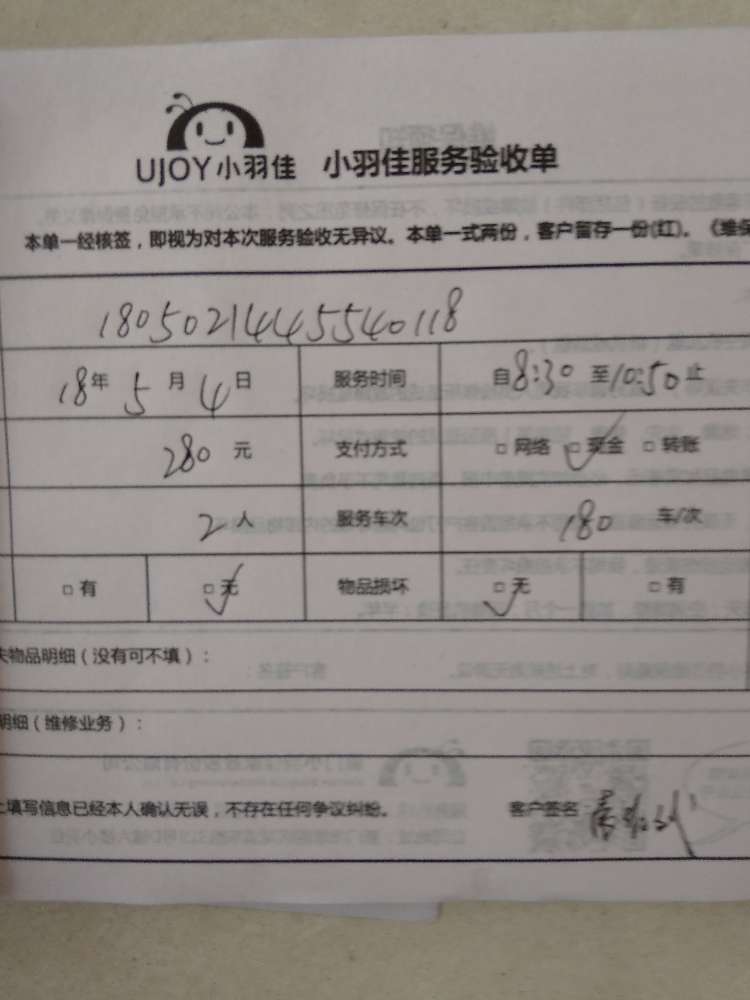 UJOY小羽佳 小羽佳服务验收单
本单一经核签，即视为对本次服务验收无异议。本单一式两份，客户留存一份(红)。《维保
18050214445540118
18年 5月 4日 服务时间 自8:30至10:50止
280元 支付方式 □网络 □现金 □转账
2人 服务车次 180 车/次
□有 □无 物品损坏 □无 □有
失物品明细（没有可不填）：
明细（维修业务）：
上填写信息已经本人确认无误，不存在任何争议纠纷。 客户签名